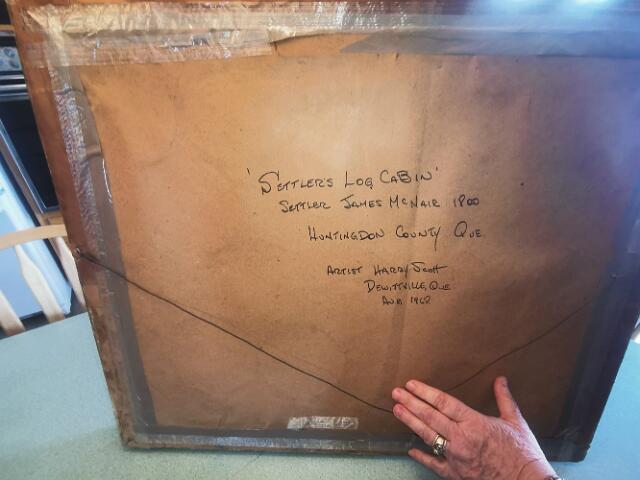 'SETTLER'S LOG CABIN'
SETTLER JAMES MCNAIR 1800
HUNTINGDON COUNTY QUE.
ARTIST HARRY SCOTT
DEWITTVILLE, QUE
AUG 1962